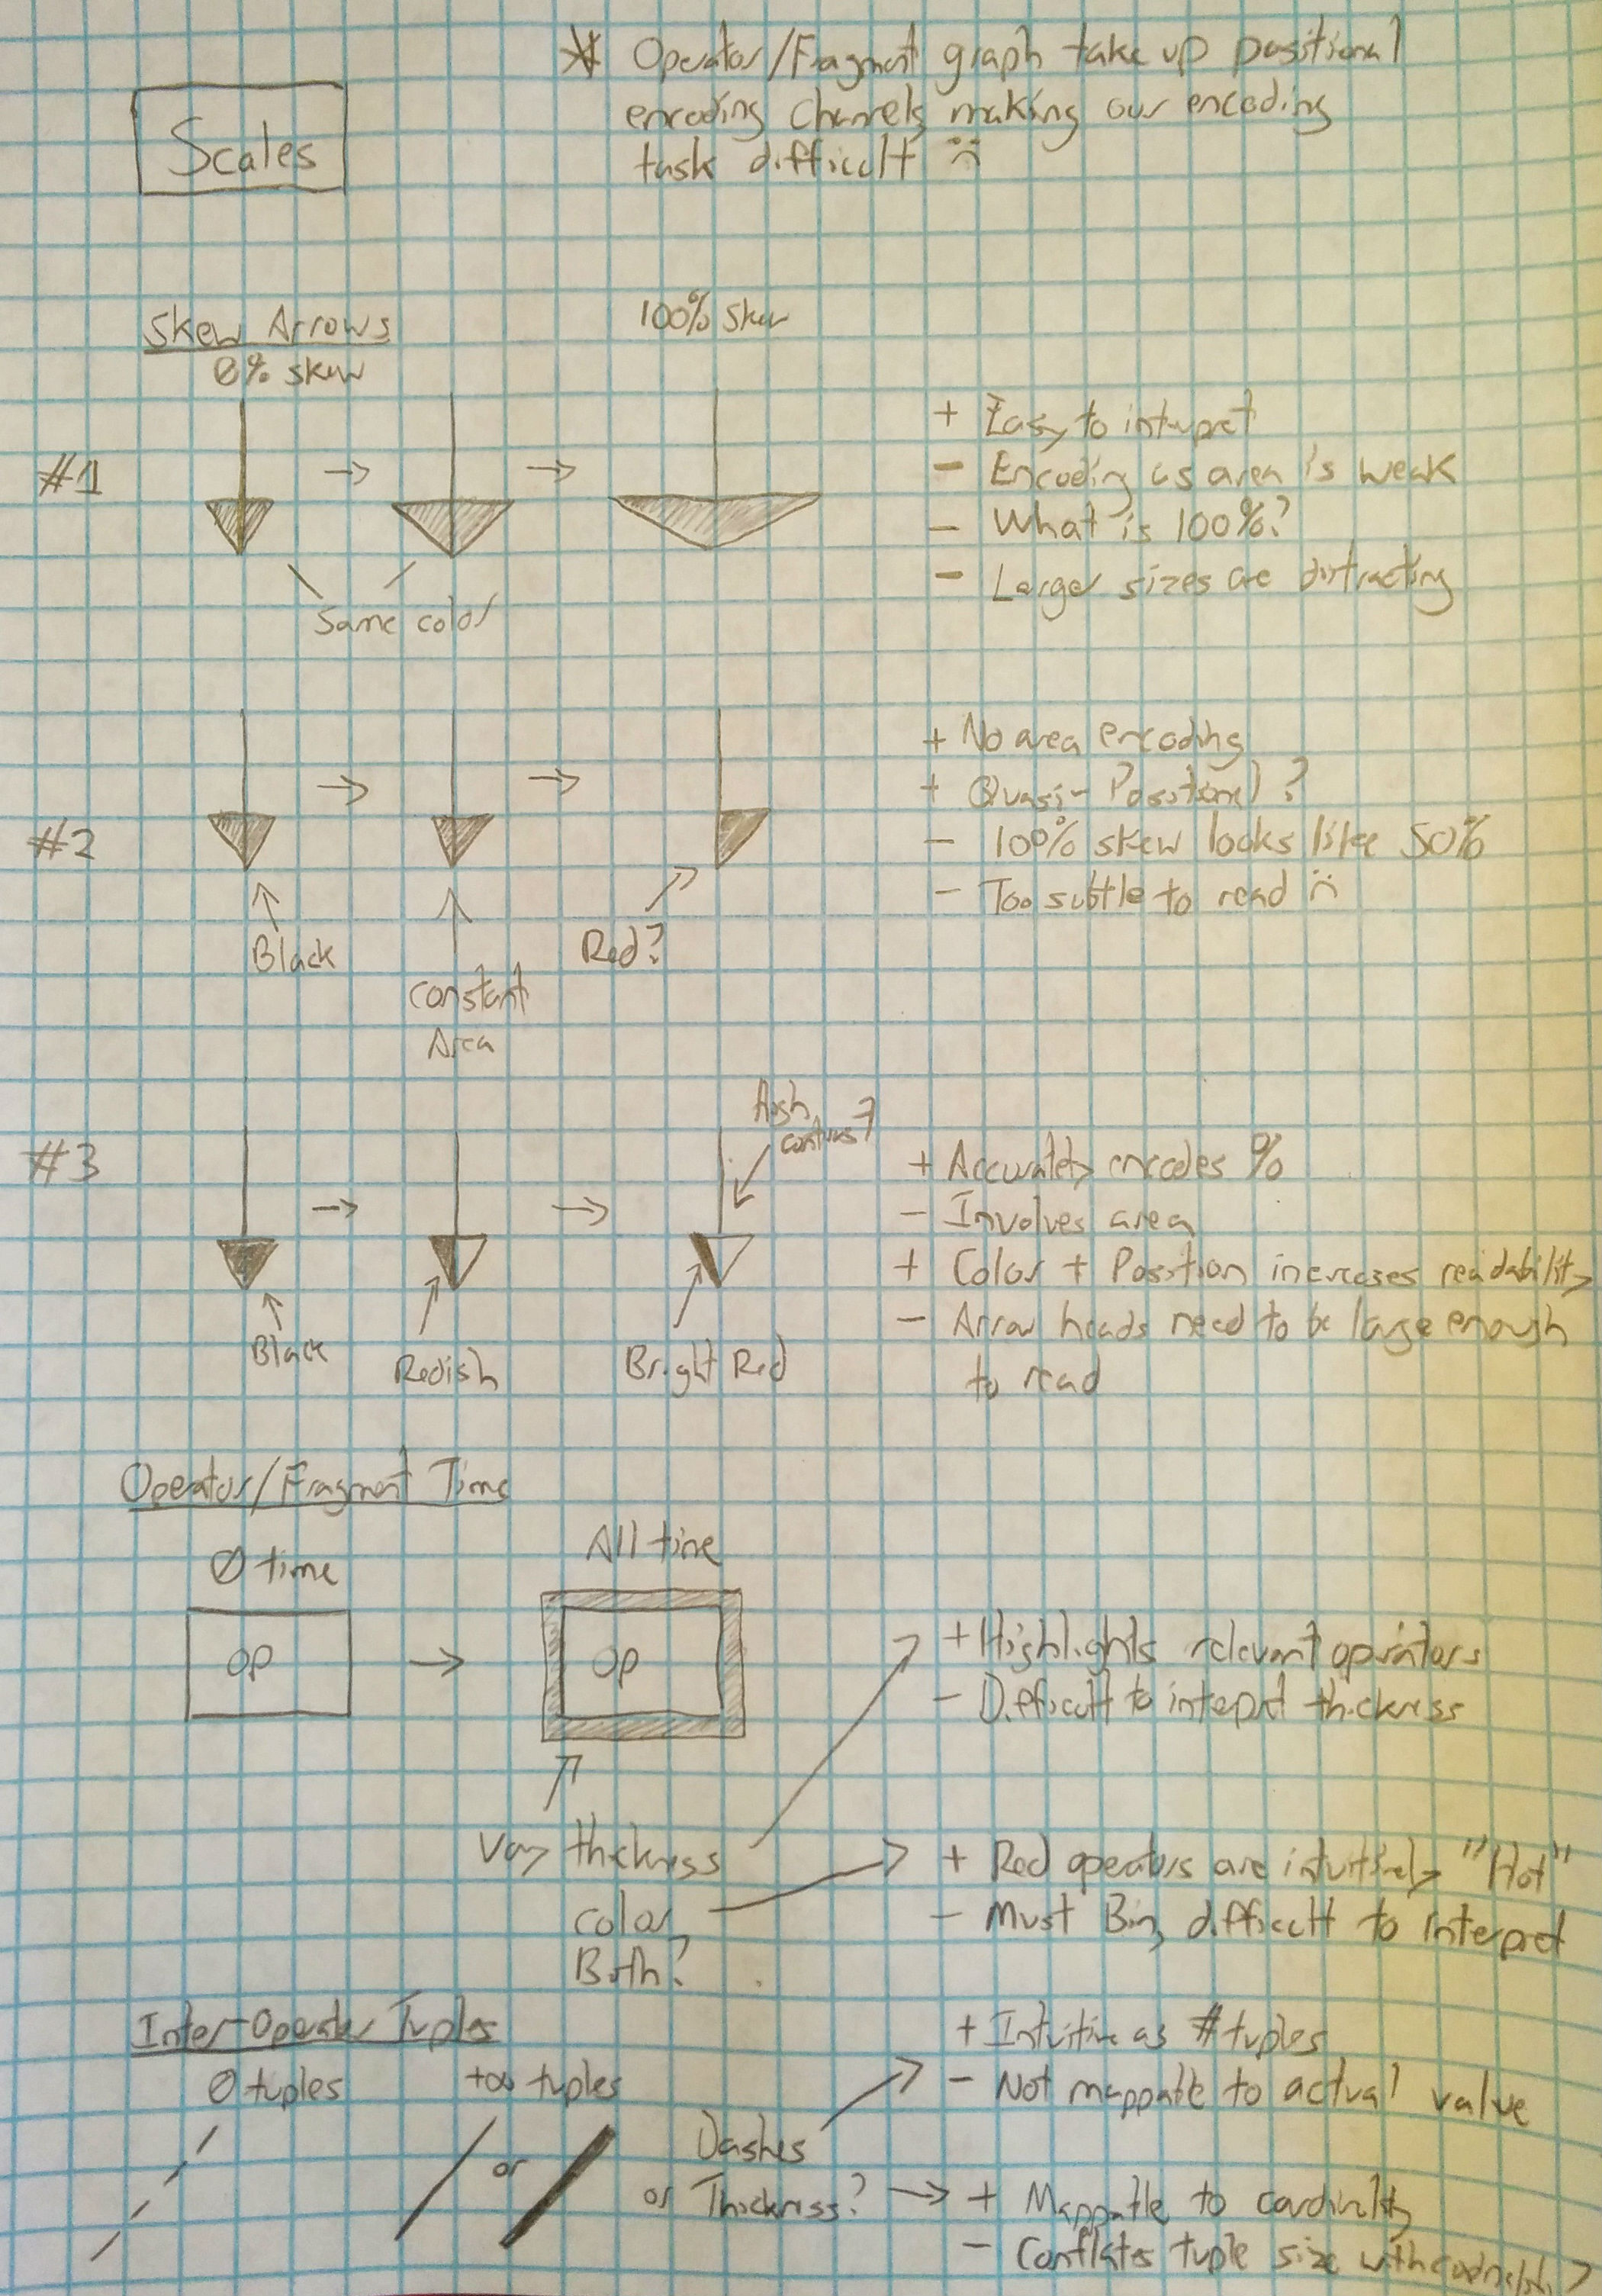 * Operator/Fragment graph take up positional
encoding channels, making our encoding
task difficult :(
Scales
Skew Arrows
0% skew
100% Skew
#1
Same color
+ Easy to interpret
- Encoding as area is weak
- What is 100%?
- Larger sizes are distracting
#2
Black
constant
Area
Red?
+ No area encoding
+ Quasi-Positional?
- 100% skew looks like 50%
- Too subtle to read :(
#3
Black
Redish
Bright Red
+ Accurately encodes %
- Involves area
+ Color + Position increases readability
- Arrow heads need to be large enough
to read
Operator/Fragment Time
0 time
All time
OP
OP
Vary thickness
color
Both?
+ Highlights relevant operators
- Difficult to interpret thickness
+ Red operators are intuitively "Hot"
- Must Bin, difficult to interpret
Inter-Operator Tuples
0 tuples
+∞ tuples
or
Dashes
or Thickness?
+ Intuitive as # tuples
- Not mappable to actual value
+ Mappable to cardinality
- Conflates tuple size with cardinality?